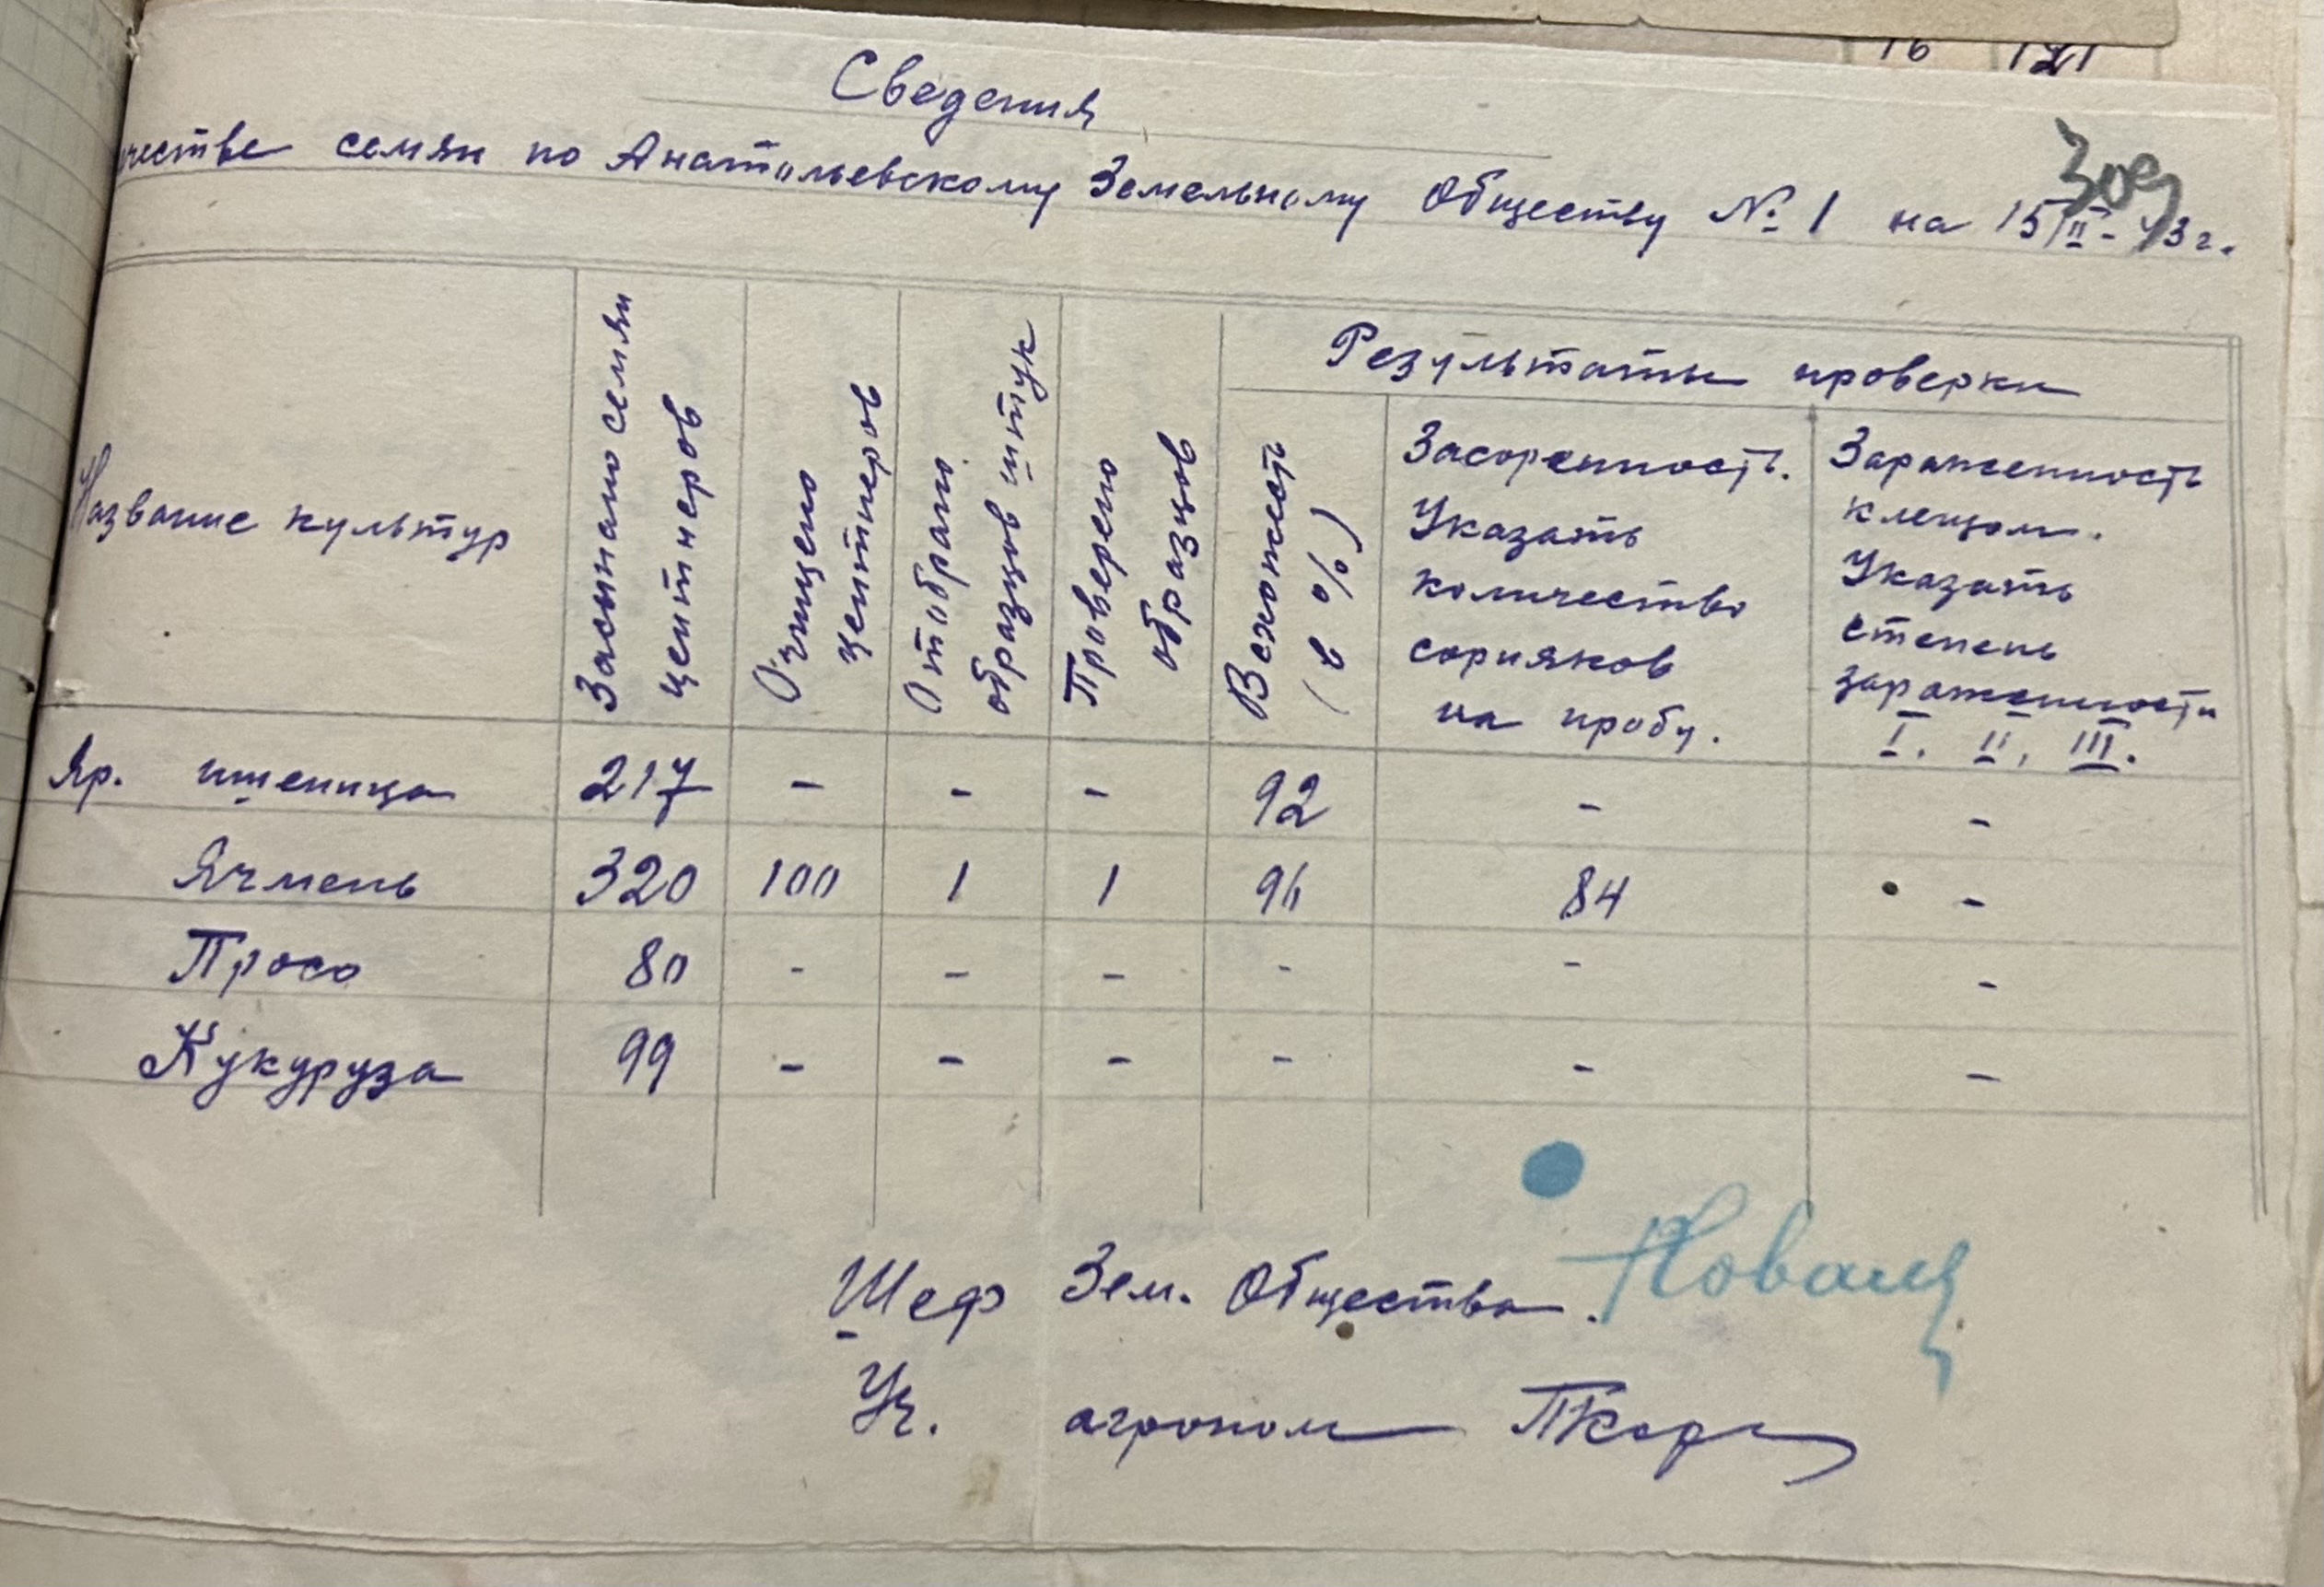 16 121
309
Сведения
честве семян по Анатольевскому Земельному Обществу № 1 на 15/II-43 г.
Название культур
Засыпано семян
центнеров
Очищено
центнеров
Отобрано
образцов штук
Проверено
образцов
Результаты проверки
Всхожесть
(в %)
Засоренность.
Указать
количество
сорняков
на пробу.
Зараженность
клещом.
Указать
степень
зараженности
I. II, III.
Яр. пшеница 217 - - - 92 - -
Ячмень 320 100 1 1 96 84 -
Просо 80 - - - - - -
Кукуруза 99 - - - - - -
Шеф Зем. Общества.
Уч. агроном